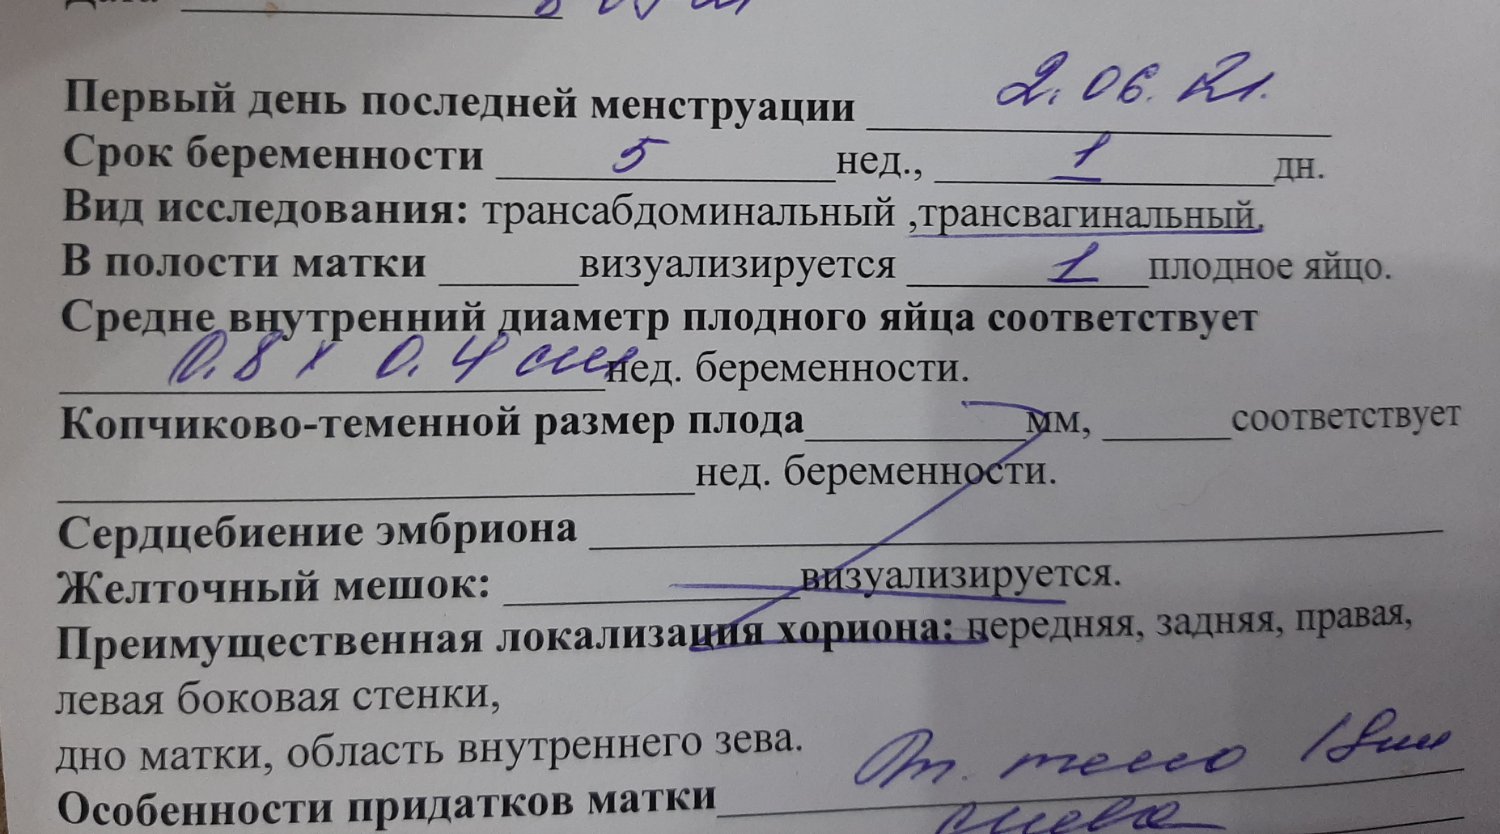 Первый день последней менструации 2. 06. 21.
Срок беременности 5 нед., 1 дн.
Вид исследования: трансабдоминальный ,трансвагинальный,
В полости матки визуализируется 1 плодное яйцо.
Средне внутренний диаметр плодного яйца соответствует
0.8 х 0.4 см нед. беременности.
Копчиково-теменной размер плода мм, соответствует
нед. беременности.
Сердцебиение эмбриона
Желточный мешок: визуализируется.
Преимущественная локализация хориона: передняя, задняя, правая,
левая боковая стенки,
дно матки, область внутреннего зева.
тело 18мм
Особенности придатков матки
слева